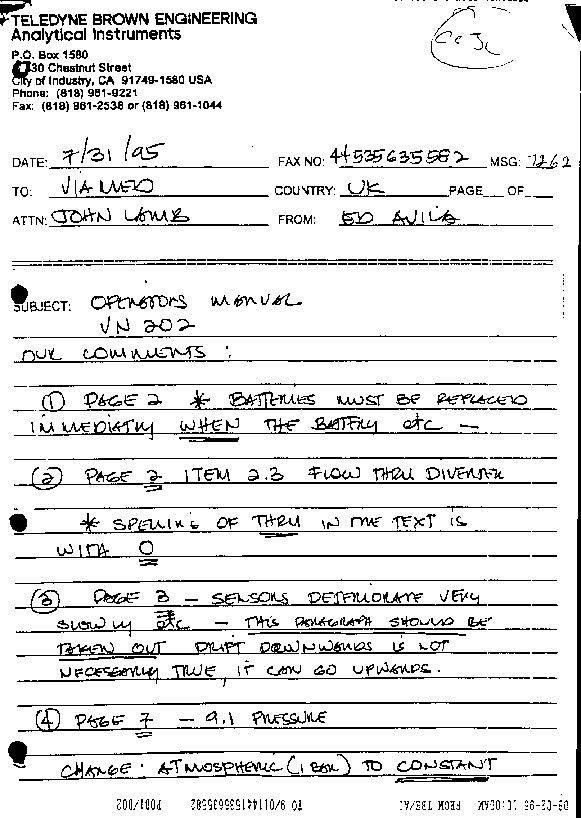 TELEDYNE BROWN ENGINEERING
Analytical Instruments
P.O. Box 1580
30 Chestnut Street
City of Industry, CA 91749-1580 USA
Phone: (818) 961-9221
Fax: (818) 961-2538 or (818) 961-1044
DATE: 7/31/95 FAX NO: 44535635582 MSG: 7262
TO: VIAMED COUNTRY: UK PAGE OF
ATTN: JOHN LAMB FROM: ED AVILA
SUBJECT: OPERATORS MANUAL
VN 202
OUR COMMENTS :
(1) PAGE 2 * BATTERIES MUST BE REPLACED
IMMEDIATLY WHEN THE BATTERY etc —
(2) PAGE 2 ITEM 2.3 FLOW THRU DIVERTER
* SPELLING OF THRU IN THE TEXT IS
WITH O
(3) PAGE 3 - SENSORS DETERIORATE VERY
SLOWLY etc - THIS PARAGRAPH SHOULD BE
TAKEN OUT DRIFT DOWNWARDS IS NOT
NECESSARILY TRUE, IT CAN GO UPWARDS.
(4) PAGE 7 - 9.1 PRESSURE
CHANGE: ATMOSPHERIC (1 BAR) TO CONSTANT
P001/002 TO 9/01144153563558 FROM TBE/AI 08-02-95 11:00AM